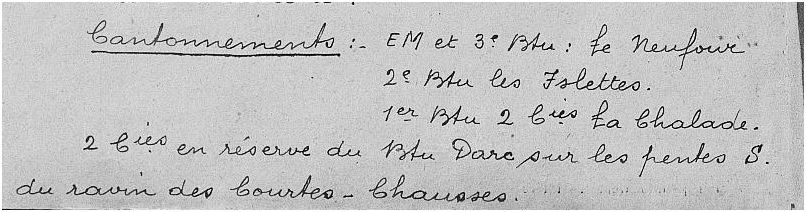 Cantonnements :- EM et 3e Btn : Le Neufour
2e Btn les Islettes.
1er Btn 2 Cies La Chalade.
2 Cies en réserve du Btn Darc sur les pentes S.
du ravin des Courtes - Chausses.